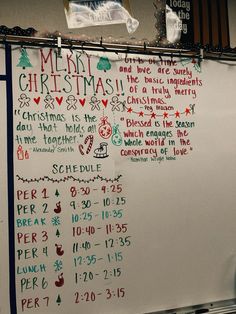 MERRY
CHRISTMAS!!
"Christmas is the
day that holds
time together."
- Alexander Smith
"Gifts of time
and love are surely
the basic ingredients
of a truly merry
Christmas."
- Peg Bracken
"Blessed is the season
which engages the
whole world in the
conspiracy of love"
- Hamilton Wright Mabie
SCHEDULE
PER 1 8:30 - 9:25
PER 2 9:30 - 10:25
BREAK 10:25 - 10:35
PER 3 10:40 - 11:35
PER 4 11:40 - 12:35
LUNCH 12:35 - 1:15
PER 6 1:20 - 2:15
PER 7 2:20 - 3:15